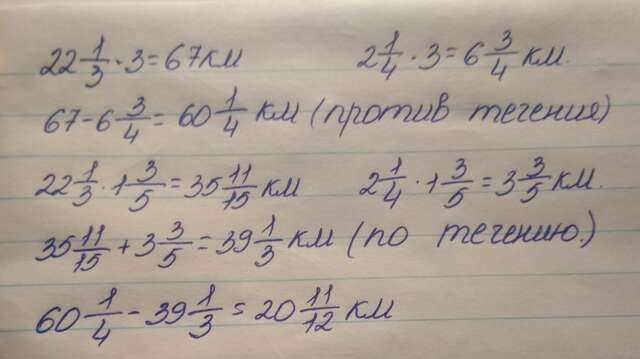 22 1/3 · 3 = 67 км   2 1/4 · 3 = 6 3/4 км.
67 - 6 3/4 = 60 1/4 км (против течения)
22 1/3 · 1 3/5 = 35 11/15 км   2 1/4 · 1 3/5 = 3 3/5 км.
35 11/15 + 3 3/5 = 39 1/3 км (по течению.)
60 1/4 - 39 1/3 = 20 11/12 км